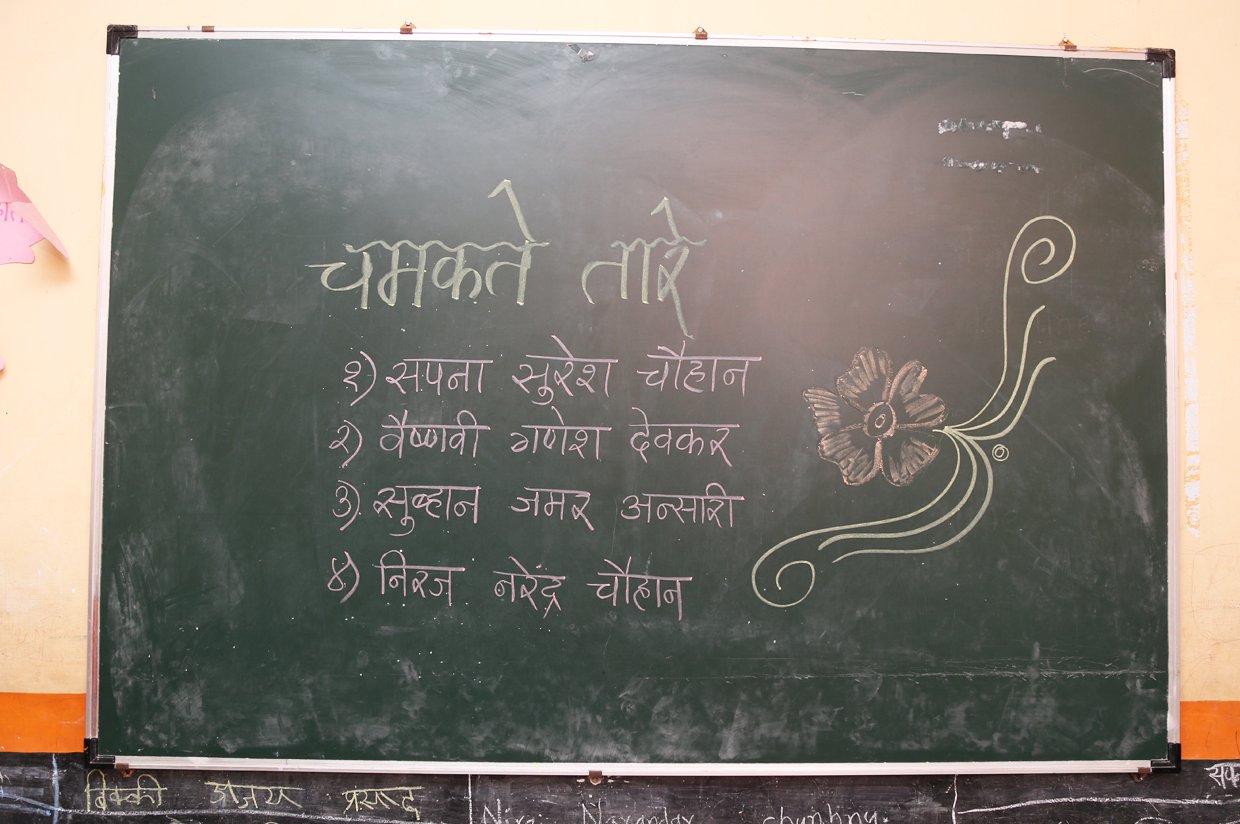 चमकते तारे
१) सपना सुरेश चौहान
२) वैष्णवी गणेश देवकर
३) सुब्हान जमर अन्सारी
४) निरज नरेंद्र चौहान
विक्की अजय प्रसाद
Niraj Narandar chauhan.